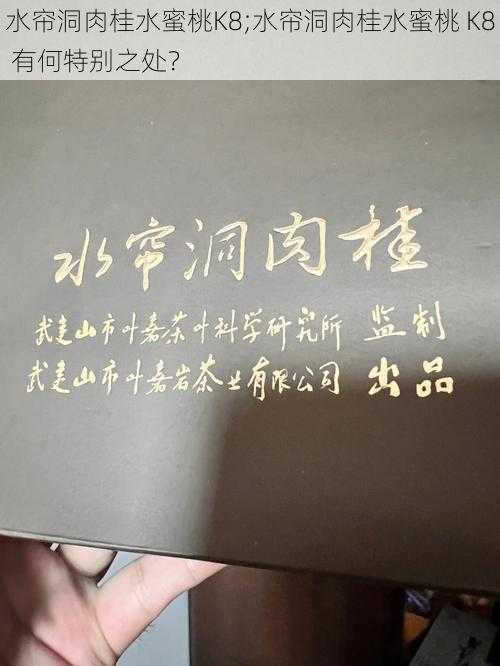 水帘洞肉桂水蜜桃K8;水帘洞肉桂水蜜桃 K8
有何特别之处?
水帘洞肉桂
武夷山市叶嘉茶叶科学研究所 监制
武夷山市叶嘉岩茶业有限公司 出品